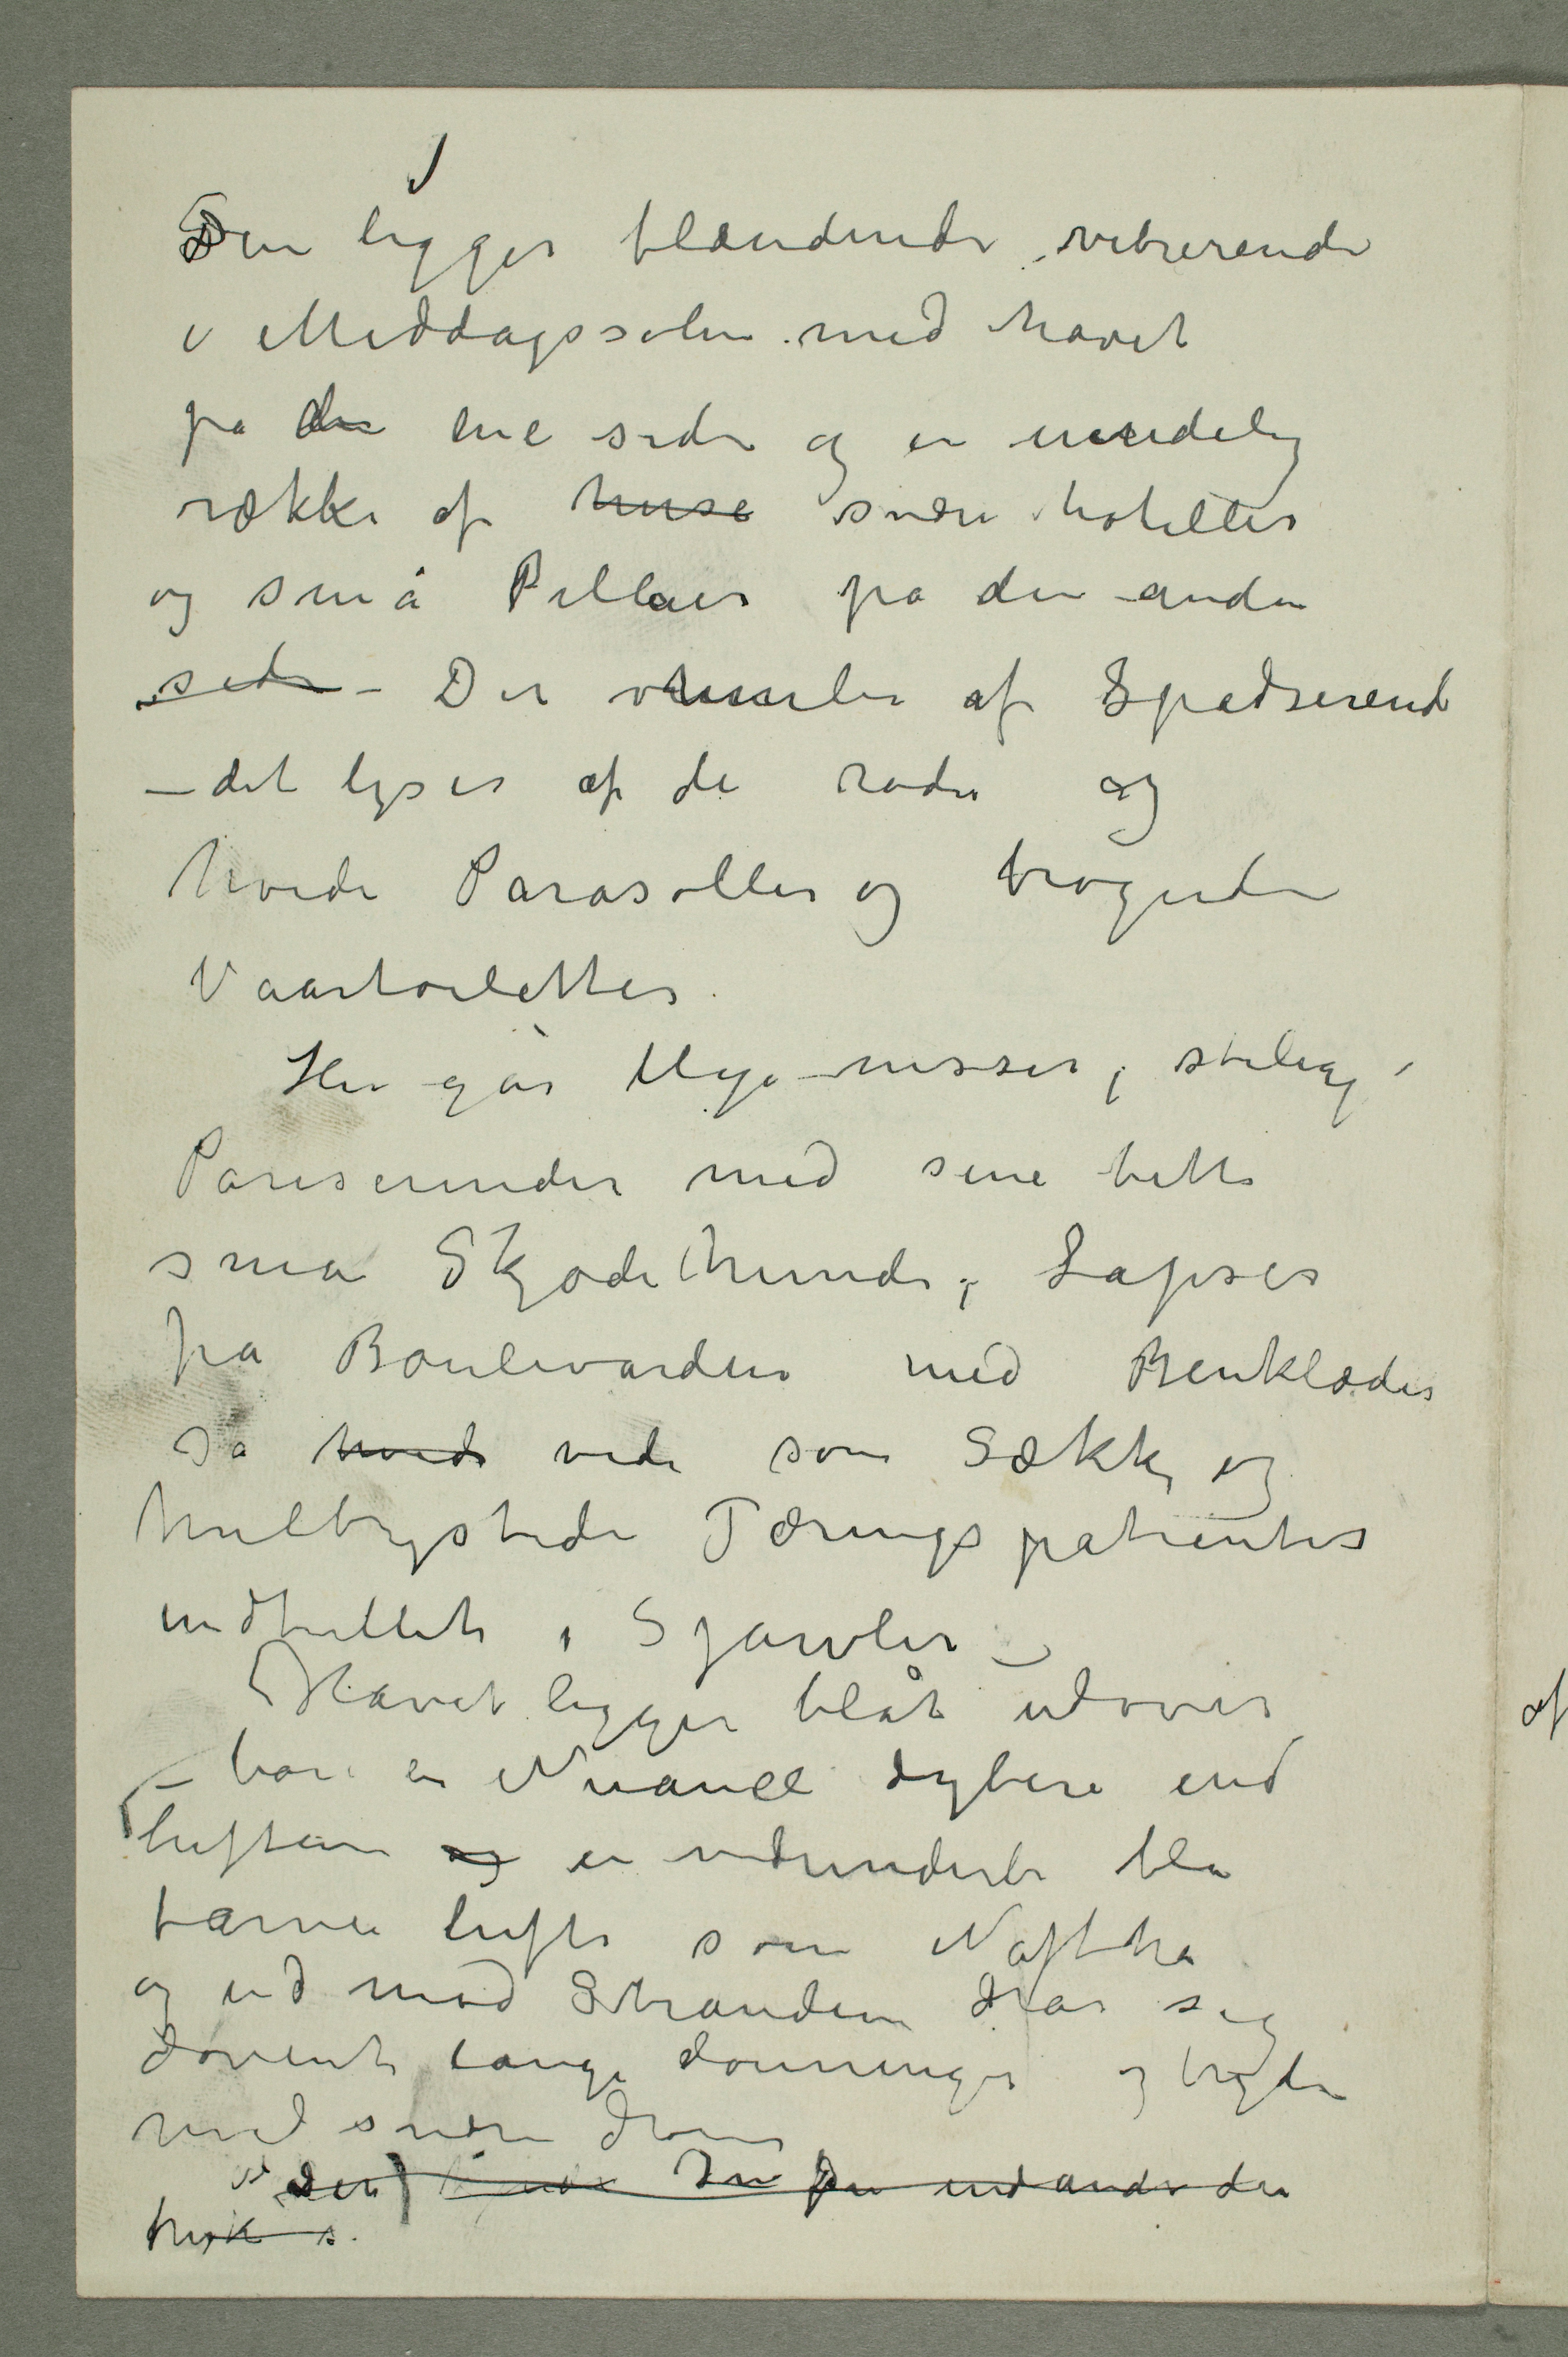 Den ligger blændende, vibrerende
i Middagssolen med havet
på den ene side og en uendelig
række af huse svære hoteller
og små Villaer på den anden
side – Der vrimler af Spadserende
– det lyser af de røde og
hvide Parasoller og brogede
Vaartoiletter.
Her går Unge misser, stilige
Pariserinder med sine bitte
små Skjødehunde, Lapser
fra Boulevarden med Benklæder
så hvide vide som Sække og
hulbrystede Tæringspatienter
indhyllet i Sjawler –
Havet ligger blåt udover
– bare en Nuance dybere end
luften og en vidunderlig blå
farve luftig som Naftha
og ind mod Stranden drar sig
dovent lange dønninger og bryder
med svære drøn
den
trykke
af